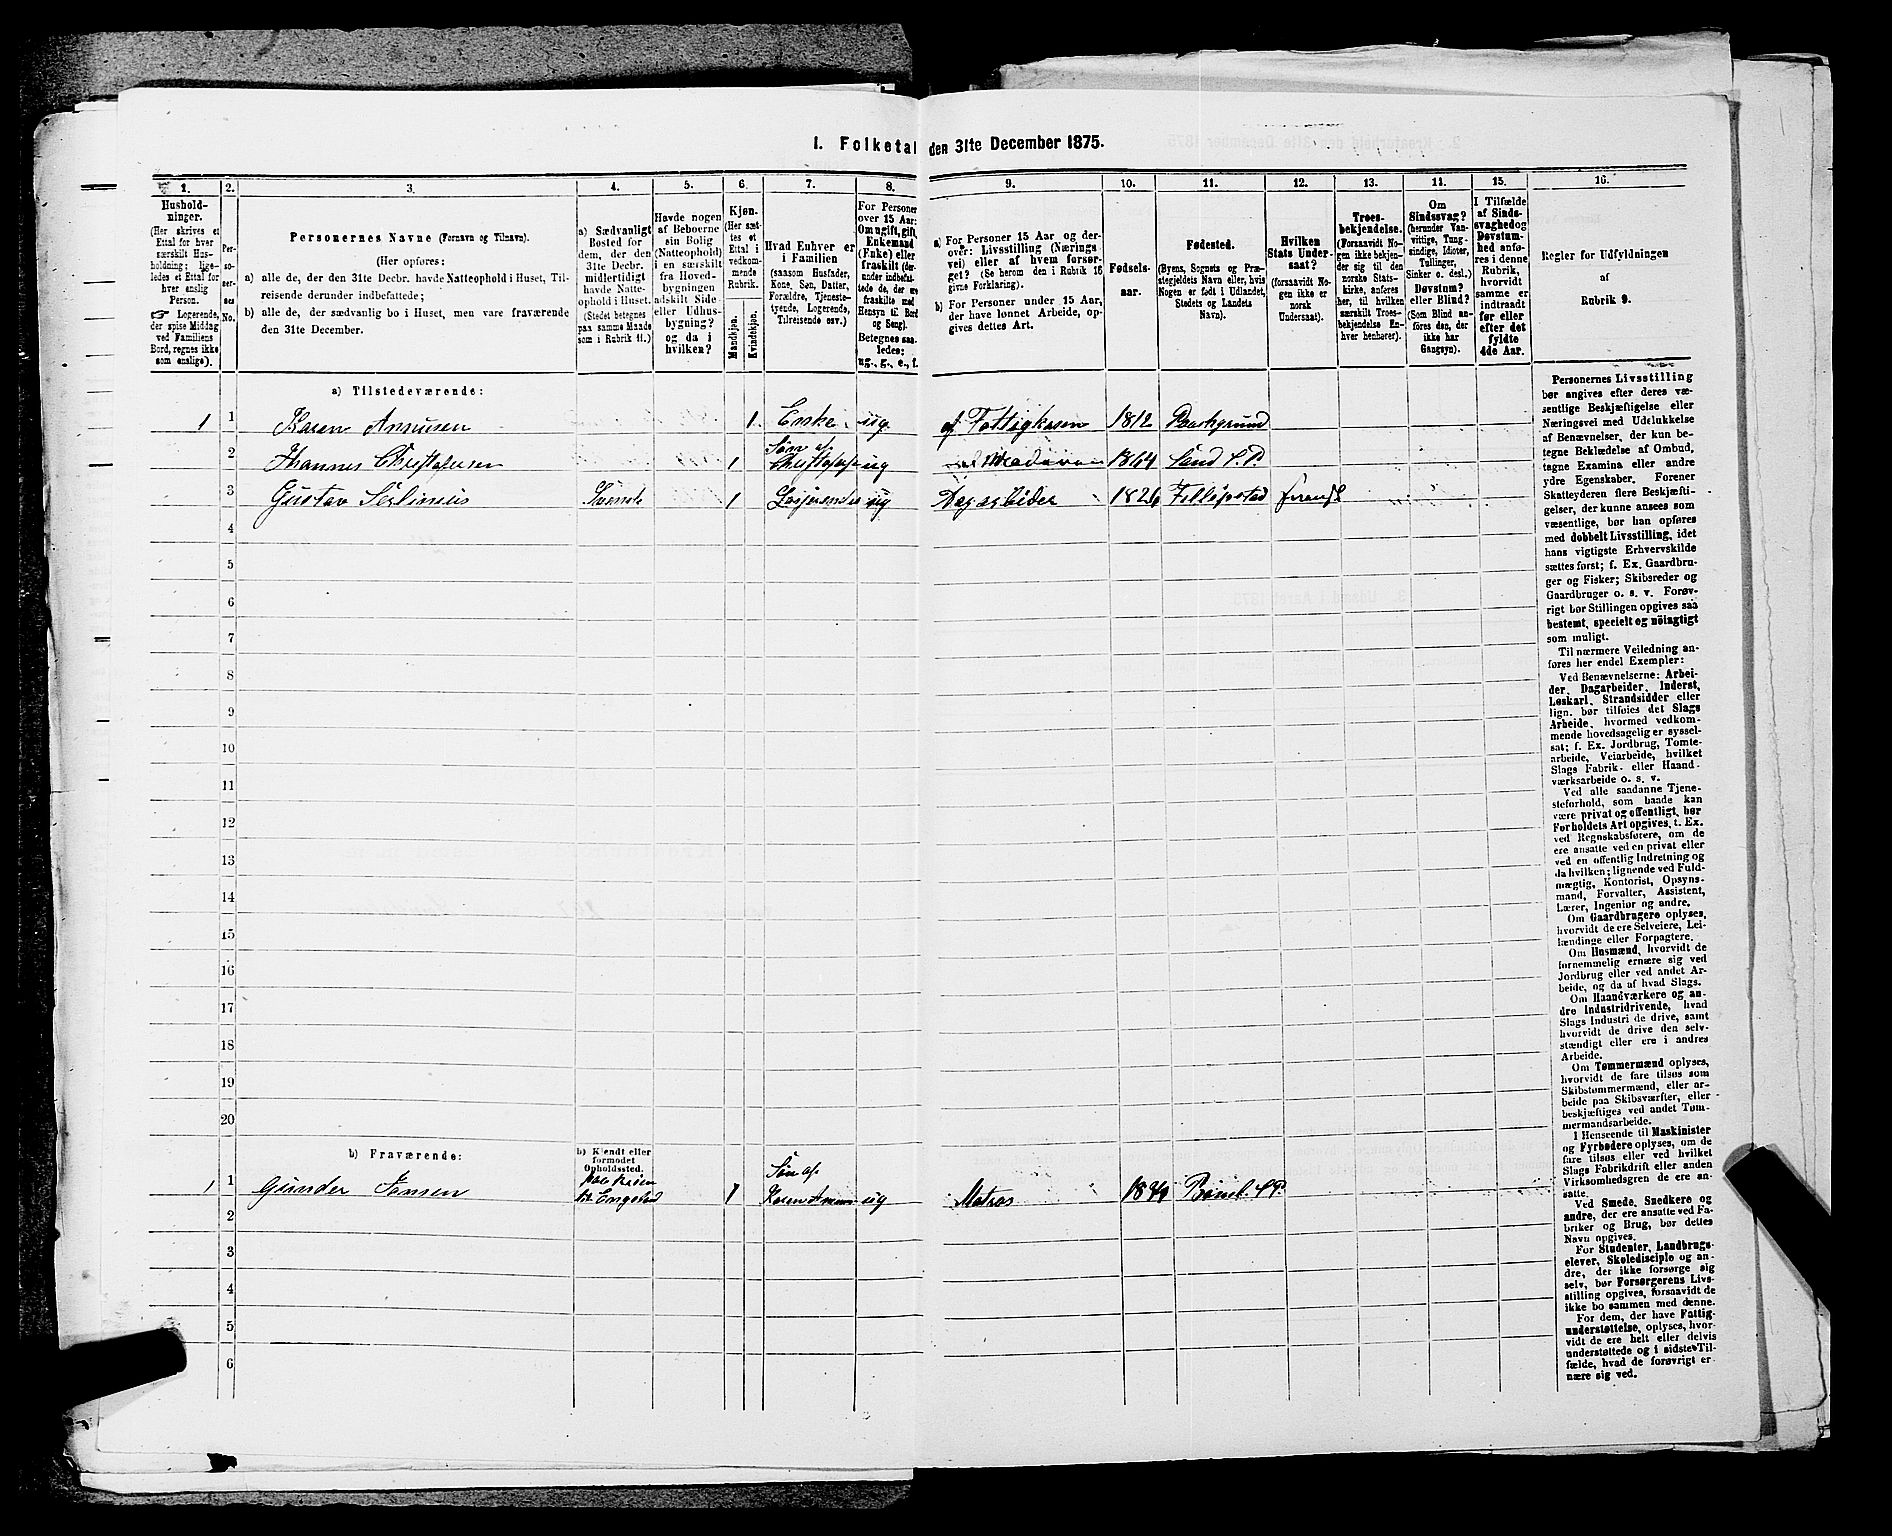 1. Folketal den 31te December 1875.
1. 2. 3. 4. 5. 6. 7. 8. 9. 10. 11. 12. 13. 11. 15. 16.
Hushold-
ninger.
(Her skrives et
Ettal for hver
særskilt Hus-
holdning; lige-
ledes et Ettal for
hver enslig
Person.
☞ Logerende,
der spise Middag
ved Familiens
Bord, regnes ikke
som enslige).
Per-
so-
ner-
nes
No.
Personernes Navne (Fornavn og Tilnavn).
(Her opføres:
a) alle de, der den 31te Decbr. havde Natteophold i Huset, Til-
reisende derunder indbefattede;
b) alle de, der sædvanlig bo i Huset, men vare fraværende
den 31te December.
a) Sædvanligt
Bosted for
dem, der den
31te Decbr.
midlertidigt
havde Natte-
ophold i Huset.
(Stedet betegnes
paa samme Maade
som i Rubrik 11.)
Havde nogen
af Beboerne
sin Bolig
(Natteophold)
i en særskilt
fra Hoved-
bygningen
adskilt Side-
eller Udhus-
bygning?
og da i
hvilken?
Kjøn.
(Her sæt-
tes et
Ettal i
vedkom-
mende
Rubrik.
Mandkjøn.
Kvindekjøn.
Hvad Enhver er
i Familien
(saasom Husfader,
Kone, Søn, Datter,
Forældre, Tjeneste-
tyende, Logerende,
Tilreisende osv.)
For Personer
over 15 Aar:
Om ugift, gift,
Enkemand
(Enke) eller
fraskilt
Hensyn til Bord
og Seng).
Betegnes saa-
ledes:
ug., g., e., f.
a) For Personer 15 Aar og der-
over: Livsstilling (Nærings-
vei) eller af hvem forsør-
get? (Se herom den i Rubrik 16
givne Forklaring).
b) For Personer under 15 Aar,
der have lønnet Arbeide, op-
gives dettes Art.
Fødsels-
aar.
Fødested.
(Byens, Sognets og Præ-
stegjeldets Navn eller, hvis
Nogen er født i Udlandet,
Stedets og Landets
Navn).
Hvilken
Stats Under-
saat?
(forsaavidt No-
gen ikke er
norsk
Undersaat).
Troes-
bekjendelse.
(Forsaavidt No-
gen ikke bekjen-
der sig til den
norske Stats-
kirke, anføres
her, til hvilken
særskilt Troes-
bekjendelse En-
hver henhører).
Om
Sindssvag?
(herunder Van-
vittige, Tung-
sindige, Idioter,
Tullinger,
Sinker o. desl.)
Døvstum?
eller Blind?
(Som Blind an-
føres den, der
ikke har
Gangsyn).
I Tilfælde
af Sinds-
svaghed og
Døvstum-
hed anfø-
res i denne
Rubrik,
hvorvidt
samme er
indtraadt
før eller
efter det
fyldte
4de Aar.
Regler for Udfyldningen
af
Rubrik 9.
a) Tilstedeværende:
1 1 Karen Amusen 1 Enke ug af Fattigkasen 1812 Porshgrund
2 Jhannes Christofersen 1 Søn af ug 1864 Sand S. P.
3 Gustav Svensk 1 Losjerende ug Dagarbeider 1826 Fillipstad svensk
4
5
6
7
8
9
10
11
12
13
14
15
16
17
18
19
20
b) Fraværende:
b) Kjendt eller
formodet
Opholdssted.
Søn af
1 1 Gunder Jansen Engeland 1 Karen ug Matros Bamel. S P.
2
3
4
5
6
Personernes Livsstilling
bør angives efter deres væ-
sentlige Beskjæftigelse eller
Næringsvei med Udelukkelse
af Benævnelser, der kun be-
tegne Beklædelse af Ombud,
tagne Examina eller andre
ydre Egenskaber. Forener
Skatteyderen flere Beskjæfti-
gelser, der kunne ansees som
væsentlige, bør han opføres
med dobbelt Livsstilling, idet
hans vigtigste Erhvervskilde
sættes først; f. Ex. Gaardbru-
ger og Fisker; Skibsreder og
Gaardbruger o. s. v. Forøv-
rigt bør Stillingen opgives saa
bestemt, specielt og nöiagtigt
som muligt.
Til nærmere Veiledning an-
føres her endel Exempler:
Ved Benævnelserne: Arbei-
der, Dagarbeider, Inderst,
Løskarl, Strandsidder eller
lign. bør tilføies det Slags
Arbeide, hvormed vedkom-
mende hovedsagelig er syssel-
sat; f. Ex. Jordbrug, Tomte-
arbeide, Veiarbeide, hvilket
Slags Fabrik- eller Haand-
værksarbeide o. s. v.
Ved alle saadanne Tjene-
steforhold, som baade kan
være privat og offentligt, bør
Forholdets Art opgives, f. Ex.
ved Regnskabsførere, om de
ere ansatte ved en privat eller
ved en offentlig Indretning og
da hvilken; lignende ved Fuld-
mægtig, Kontorist, Opsyns-
mand, Forvalter, Assistent,
Lærer, Ingeniør og andre.
Om Gaardbrugere oplyses,
hvorvidt de ere Selveiere, Lei-
lændinge eller Forpagtere.
Om Husmænd, hvorvidt de
fornemmelig ernære sig ved
Jordbrug eller ved andet Ar-
beide, og da af hvad Slags.
Om Haandværkere og an-
dre Industridrivende, hvad
Slags Industri de drive, samt
hvorvidt de drive den selv-
stændigt eller ere i andres
Arbeide.
Om Tømmermænd oplyses,
hvorvidt de fare tilsøs som
Skibstømmermænd, eller ar-
beide paa Skibsværfter, eller
beskjæftiges ved andet Tøm-
mermandsarbeide.
I Henseende til Maskinister
og Fyrbødere oplyses, om de
fare tilsøs eller ved hvilket
Slags Fabrikdrift eller anden
Virksomhedsgren de ere an-
satte.
Ved Smede, Snedkere og
andre, der ere ansatte ved Fa-
briker og Brug, bør dettes
Navn opgives.
For Studenter, Landbrugs-
elever, Skoledisciple og an-
dre, der ikke forsørge sig
selv, bør Forsørgerens Livs-
stilling opgives, forsaavidt de
ikke bo sammen med denne.
For dem, der have Fattig-
understøttelse, oplyses, hvor-
vidt de ere helt eller delvis
understøttede og i sidste Til-
fælde, hvad de forøvrigt er-
nære sig ved.